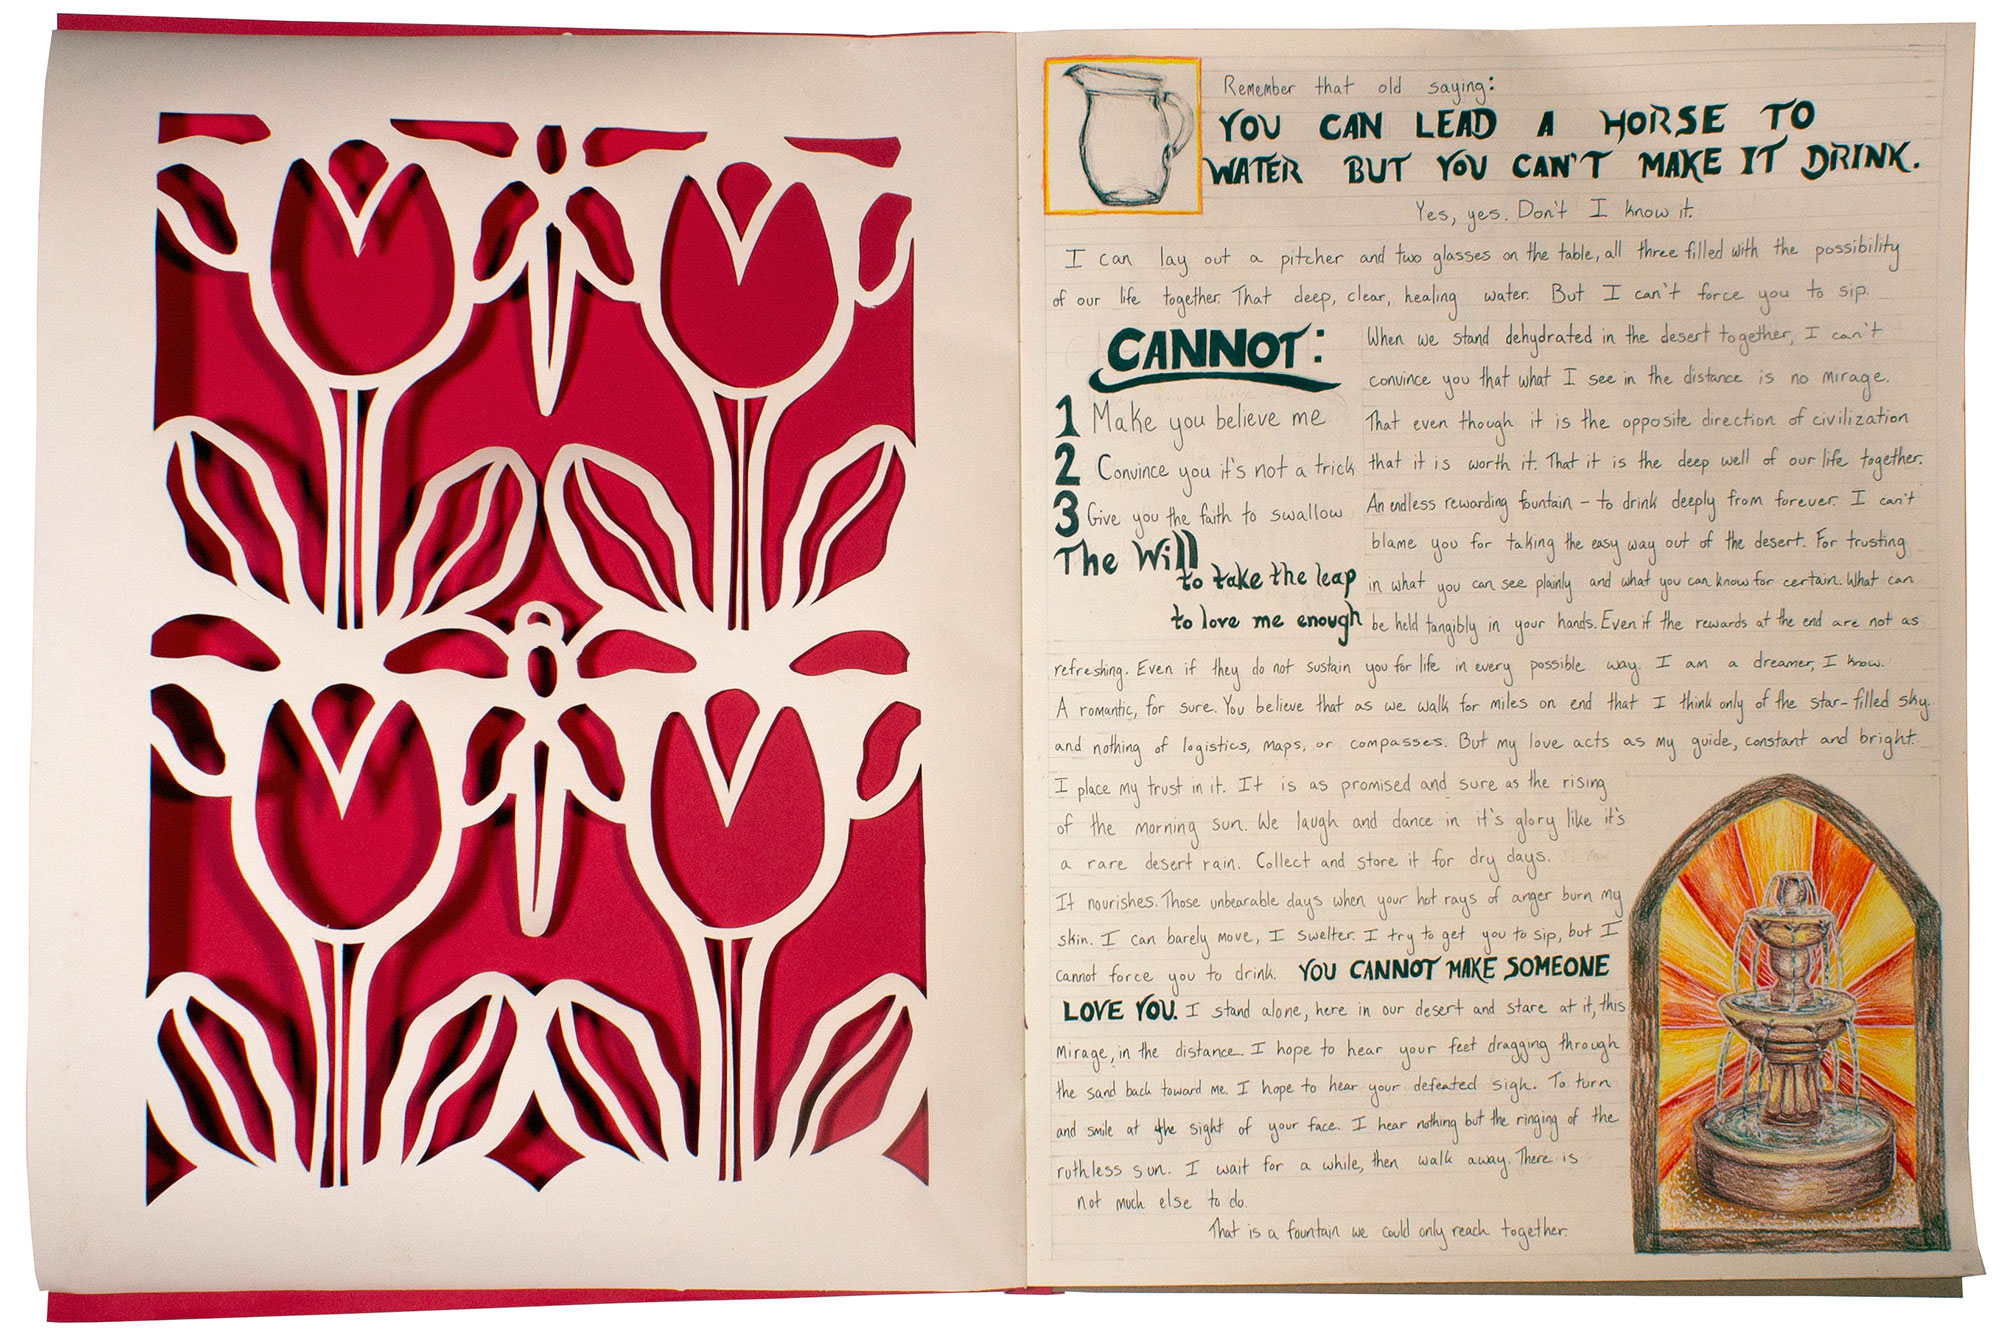 Remember that old saying:
YOU CAN LEAD A HORSE TO
WATER BUT YOU CAN'T MAKE IT DRINK.
Yes, yes. Don't I know it.
I can lay out a pitcher and two glasses on the table, all three filled with the possibility
of our life together. That deep, clear, healing water. But I can't force you to sip.
CANNOT:
1 Make you believe me
2 Convince you it's not a trick
3 Give you the faith to swallow
The Will
to take the leap
to love me enough
When we stand dehydrated in the desert together, I can't
convince you that what I see in the distance is no mirage.
That even though it is the opposite direction of civilization
that it is worth it. That it is the deep well of our life together.
An endless rewarding fountain - to drink deeply from forever. I can't
blame you for taking the easy way out of the desert. For trusting
in what you can see plainly and what you can know for certain. What can
be held tangibly in your hands. Even if the rewards at the end are not as
refreshing. Even if they do not sustain you for life in every possible way. I am a dreamer, I know.
A romantic, for sure. You believe that as we walk for miles on end that I think only of the star-filled sky
and nothing of logistics, maps, or compasses. But my love acts as my guide, constant and bright.
I place my trust in it. It is as promised and sure as the rising
of the morning sun. We laugh and dance in it's glory like it's
a rare desert rain. Collect and store it for dry days.
It nourishes. Those unbearable days when your hot rays of anger burn my
skin. I can barely move, I swelter. I try to get you to sip, but I
cannot force you to drink. YOU CANNOT MAKE SOMEONE
LOVE YOU. I stand alone, here in our desert and stare at it, this
Mirage, in the distance. I hope to hear your feet dragging through
the sand back toward me. I hope to hear your defeated sigh. To turn
and smile at the sight of your face. I hear nothing but the ringing of the
ruthless sun. I wait for a while, then walk away. There is
not much else to do.
That is a fountain we could only reach together.